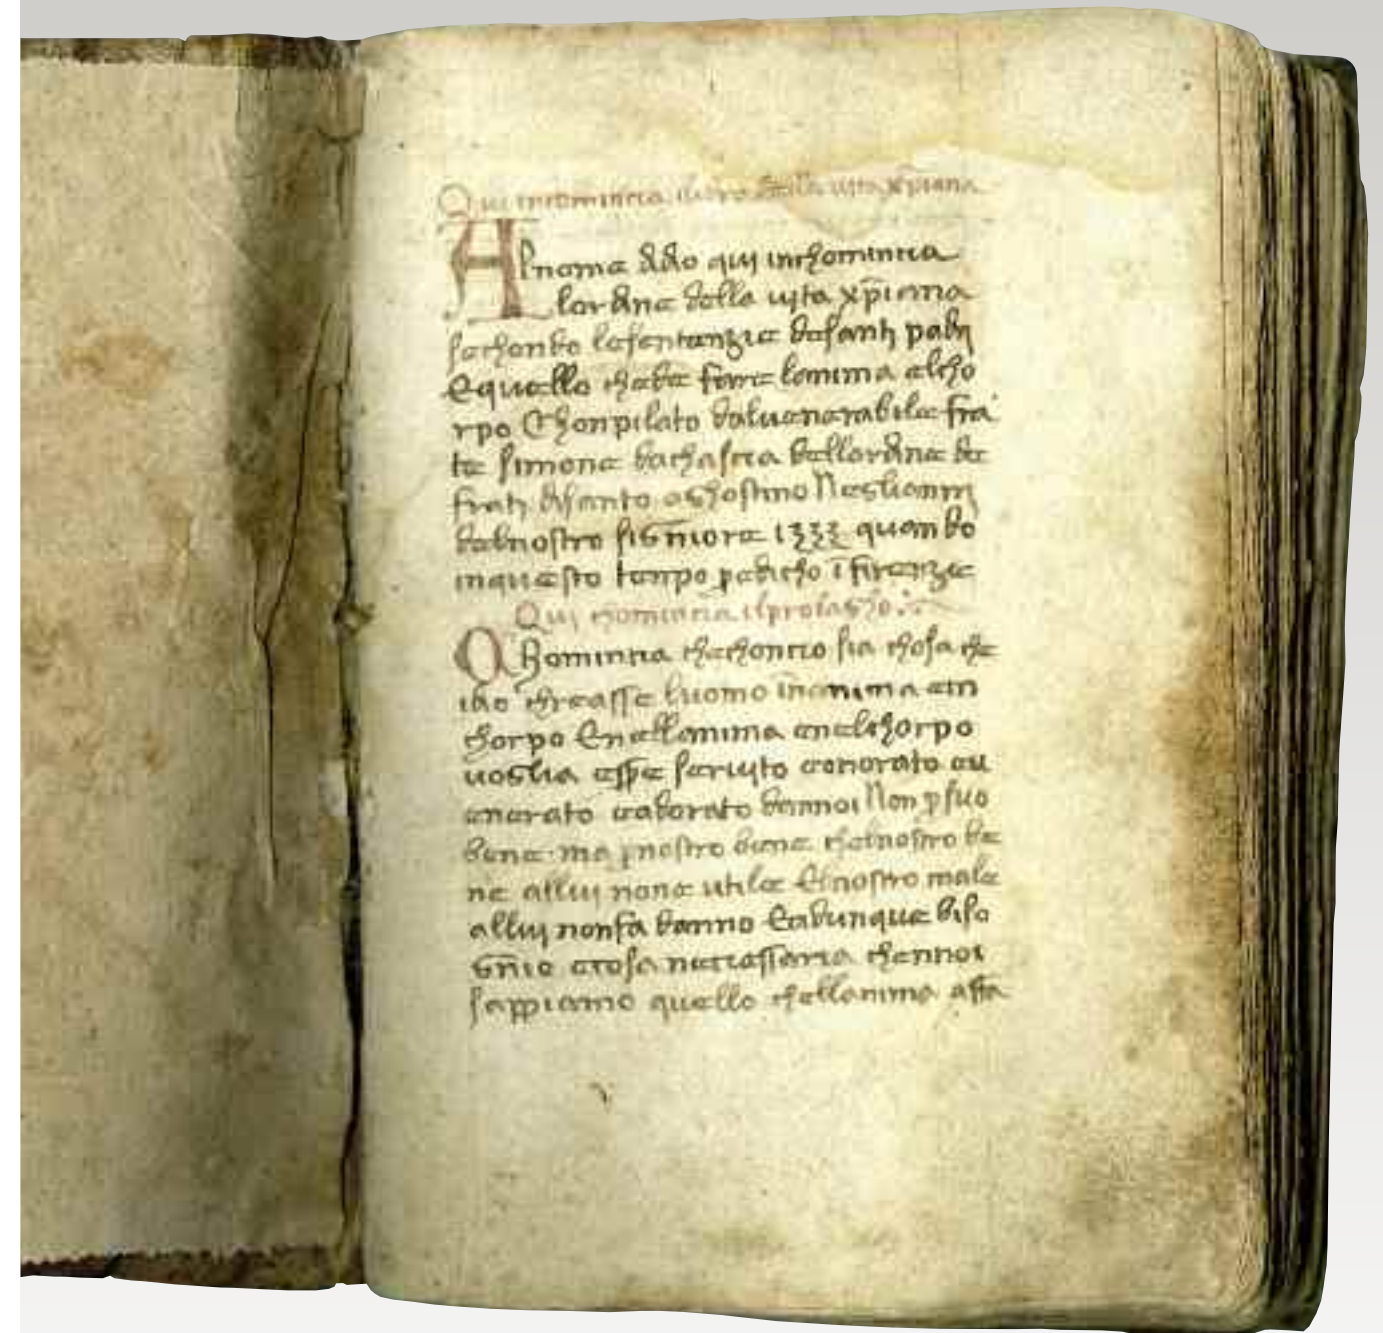 Qui incomincia ilibro della uita xp̄iana
Alnome ddo quj inchomincia
lordine della ujta xp̄iana
sechondo lesentenzie desanti padrj
Equello chede fare lanima elcho
rpo Chonpilato daluenerabile fra
te simone dachascia dellordine de
frati disanto aghostino Negliannj
delnostro signiore 1333 quando
inquesto tenpo predicho ī firenze
Quj chomincia ilprolagho
Chomincia chechoncio sia chosa che
iddo chreasse luomo inanima em
chorpo Enellanima enelchorpo
uoglia esse seruito eonorato eu
enerato eadorato dannoi Non p̱ suo
bene ma p̱ nostro bene chelnostro be
ne alluj none utile Elnostro male
alluj nonfa danno Eadunque biso
gnio echosa neciessaria chennoi
sappiamo quello chellanima assa